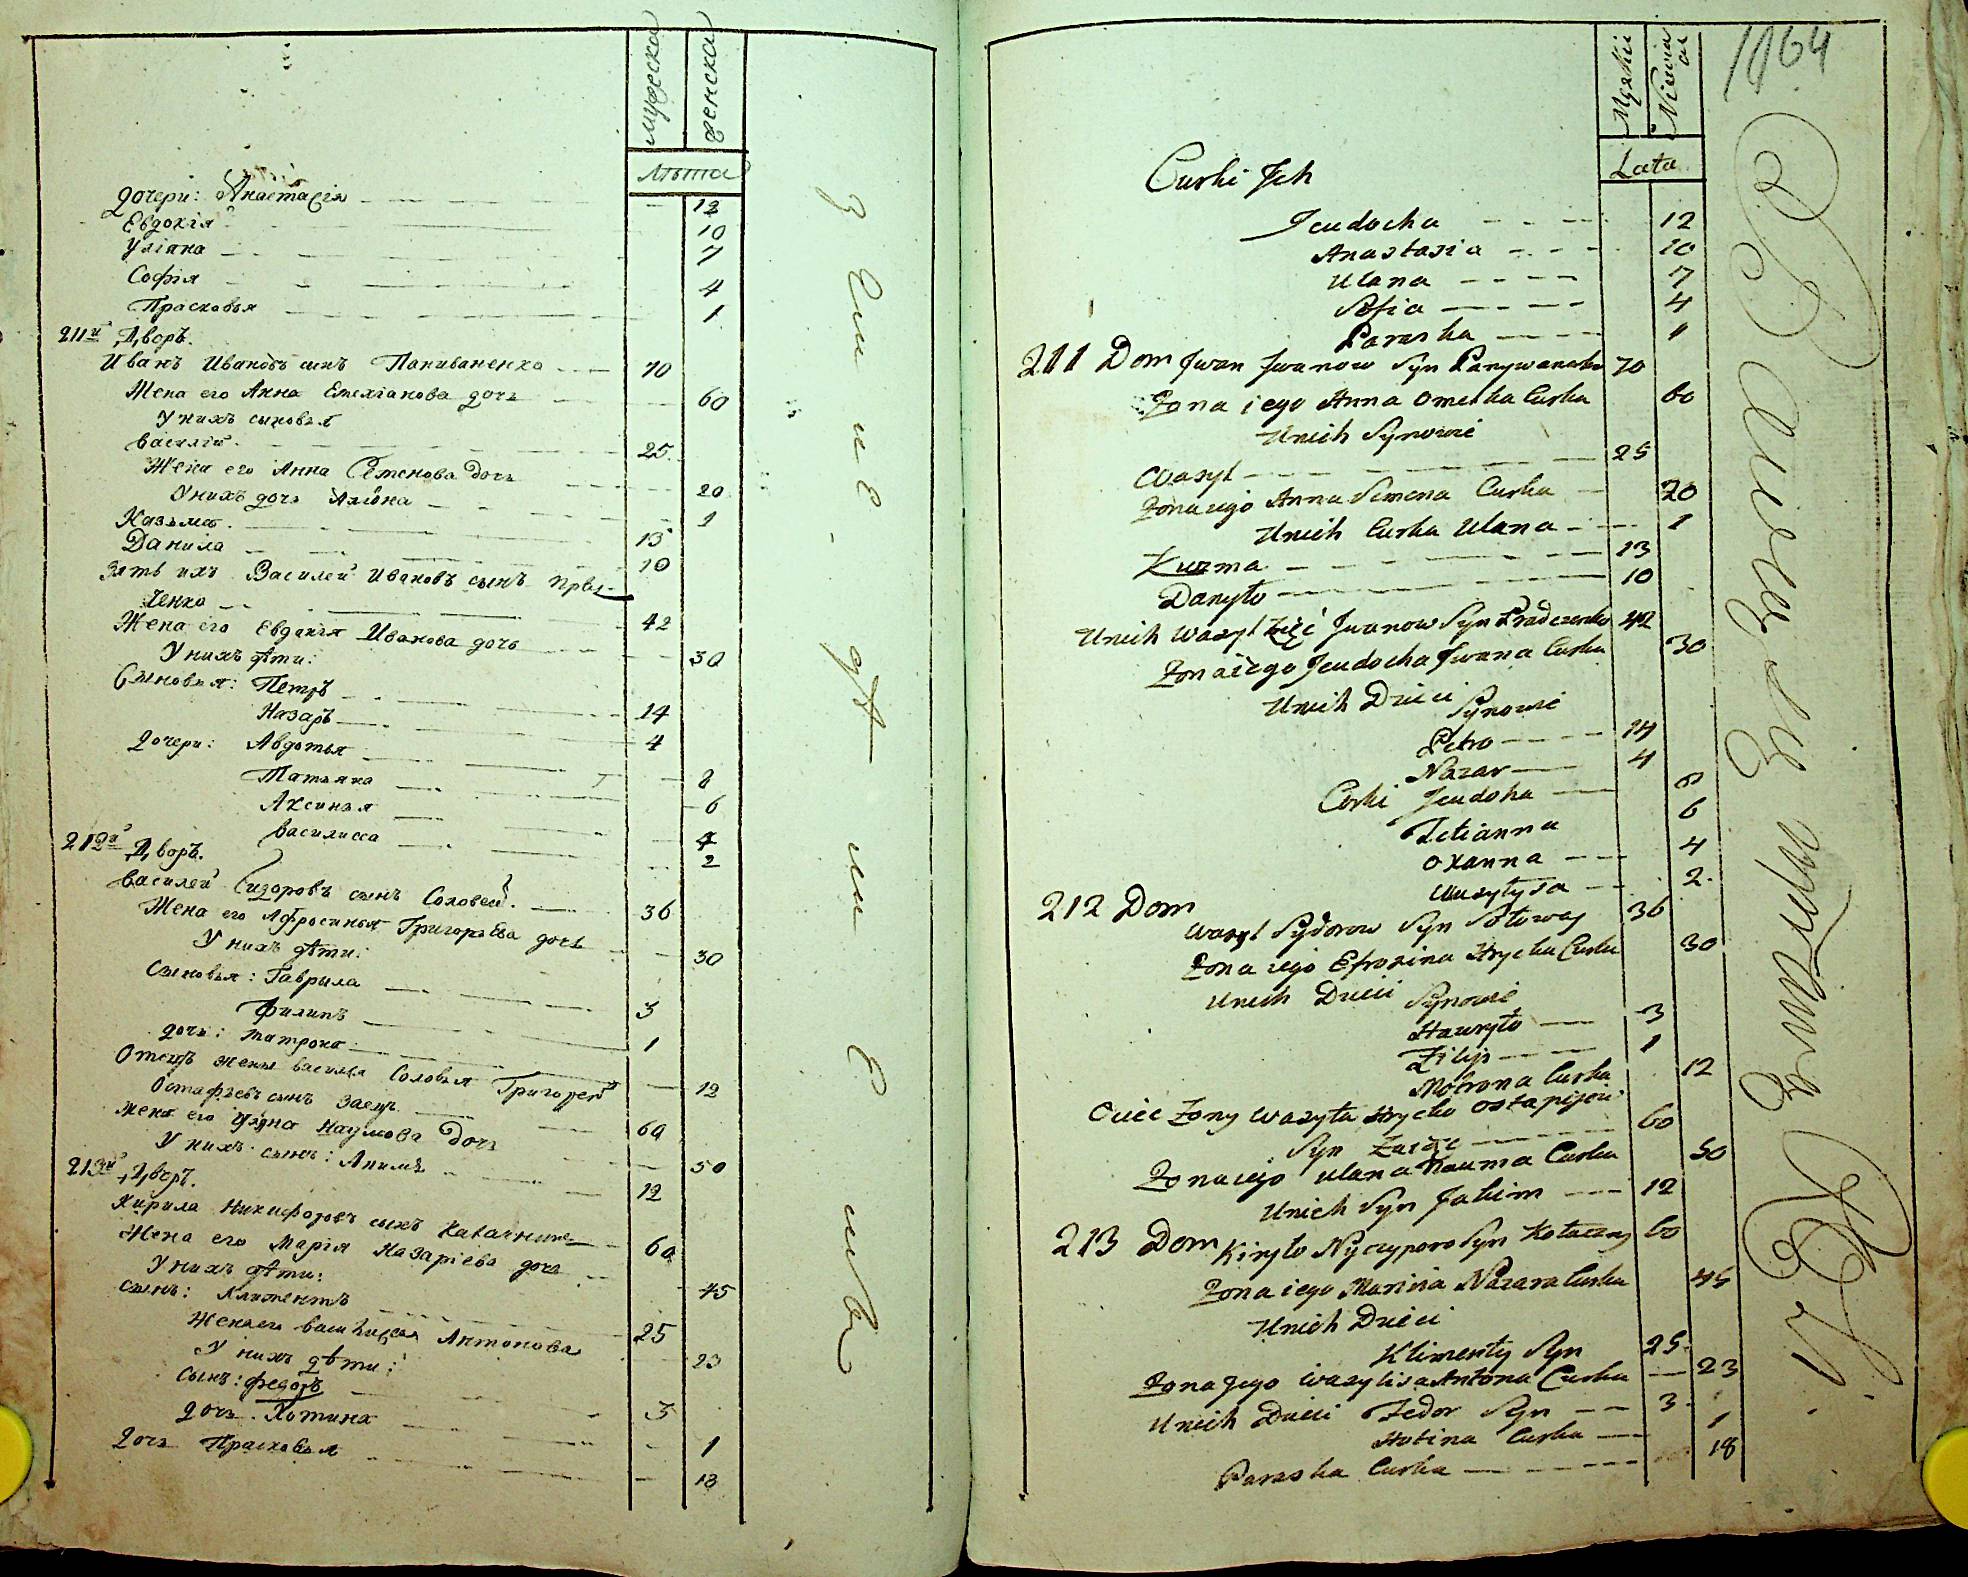 мужеска
женска
лѣта
дочери: Анастасія 12
Евдокія 10
Уліяна 7
Софія 4
Прасковья 1
211й Дворъ.
Иванъ Ивановъ сынъ Паниваненко 70
Жена его Анна Емеліанова дочь 60
У нихъ сыновья
Василій 25
Жена его Анна Семенова дочь 20
У нихъ дочь 1
Казьма 13
Данила 10
Зять ихъ Василей Ивановъ сынъ
ченко 42
Жена его Евдокія Иванова дочь 30
У нихъ дѣти:
Сыновья: Петръ 14
Назаръ 4
дочери: Авдотья 8
Татьяна 6
Аксинья 4
Василисса 2
212й Дворъ.
Василей Сидоровъ сынъ Соловей 36
Жена его Афросинья Григорьева дочь 30
У нихъ дѣти:
Сыновья: Гаврила 3
Филипъ 1
дочь: Матрона 12
Отецъ жены Василья Соловья Григорей
Остафьевъ сынъ Заецъ 60
Жена его Наумова дочь 50
У нихъ сынъ: 12
213й Дворъ.
Кирила Никифоровъ сынъ 60
Жена его Марія Назаріева дочь 45
У нихъ дѣти:
сынъ: Климентъ 25
Жена его Василиса Антонова 23
У нихъ дѣти:
Сынъ: Федоръ 3
дочь Хотина 1
дочь Прасковья 18
1064
Męzkii
Lata
Curki Ich
Jeudocha 12
Anastasia 10
Ulana 7
Sofia 4
Paraska 1
211 Dom Jwan Jwanow Syn Panywanenko 70
Zona iego Anna Omelka Curka 60
Unich Synowie
Wasyl 25
Zona iego Anna Semena Curka 20
Unich Curka Ulana 1
Kuzma 13
Danyło 10
Unich Wasyl Zięć Jwanow Syn 42
Zona iego Jeudocha Jwana Curka 30
Unich Dzieci Synowie
Petro 14
Nazar 4
Corki Jeudoha 8
Tetianna 6
Oxanna 4
Wasylysa 2
212 Dom
Wasyl Sydorow Syn Sołowey 36
Zona iego Efrozina Hrycka Curka 30
Unich Dzieci Synowie
Hawryło 3
Filip 1
Motrona Curka 12
Ociec Zony Wasyla Hrycko Ostapijow
Syn Zaiąc 60
Zona iego Ulana Nauma Curka 50
Unich Syn Jakim 12
213 Dom Kiryło Nyczyporo Syn Kołaczny 60
Zona iego Marina Nazara Curka 45
Unich Dzieci
Klimenty Syn 25
Zona Jego Wasylisa Antona Curka 23
Unich Dzieci Fedor Syn 3
Hotina Curka 1
Paraska Curka 18